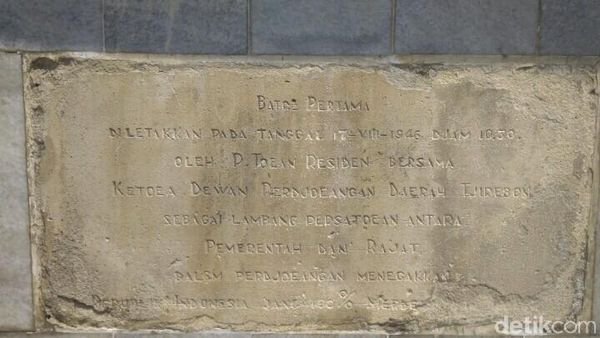 BATOE PERTAMA
DILETAKKAN PADA TANGGAL 17-VIII-1946 DJAM 10,30.
OLEH P. TOEAN RESIDEN BERSAMA
KETOEA DEWAN PERDJOEANGAN DAERAH TJIREBON
SEBAGAI LAMBANG PERSATOEAN ANTARA
PEMERENTAH DAN RAJAT
DALAM PERDJOEANGAN MENEGAKKAN
REPUBLIK INDONESIA JANG 100 %
detikcom